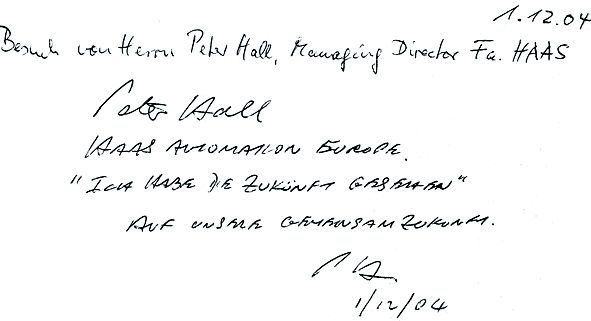 1.12.04
Besuch von Herrn Peter Hall, Managing Director Fa. HAAS
Peter Hall
HAAS AUTOMATION EUROPE.
"ICH HABE DIE ZUKUNFT GESEHEN"
AUF UNSERE GEMEINSAM ZUKUNFT.
PH.
1/12/04